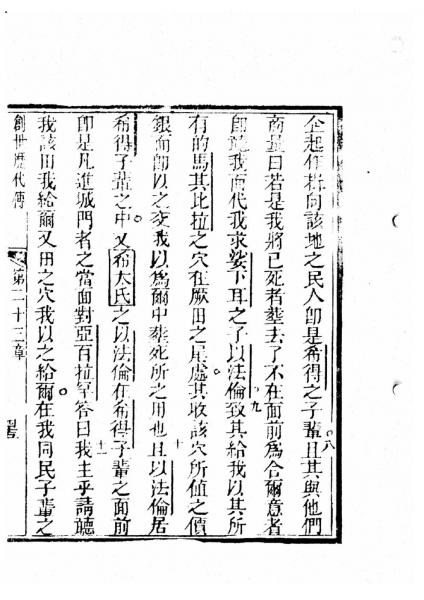 企起作揖向該地之民人即是希得之子輩且其與他們
商量曰若是我將已死者葬去了不在面前爲合爾意者
即聽我而代我求娑下耳之子以法倫致其給我以其所
有的馬其比拉之穴在厥田之尾處其收該穴所值之價
銀而即以之交我以爲爾中葬死所之用也且以法倫居
希得子輩之中又希太氏之以法倫在希得子輩之面前
即是凡進城門者之當面對亞百拉罕答曰我主乎請聽
我該田我給爾又田之穴我以之給爾在我同民子輩之
創世歷代傳
第二十三章
八
九
十
十一